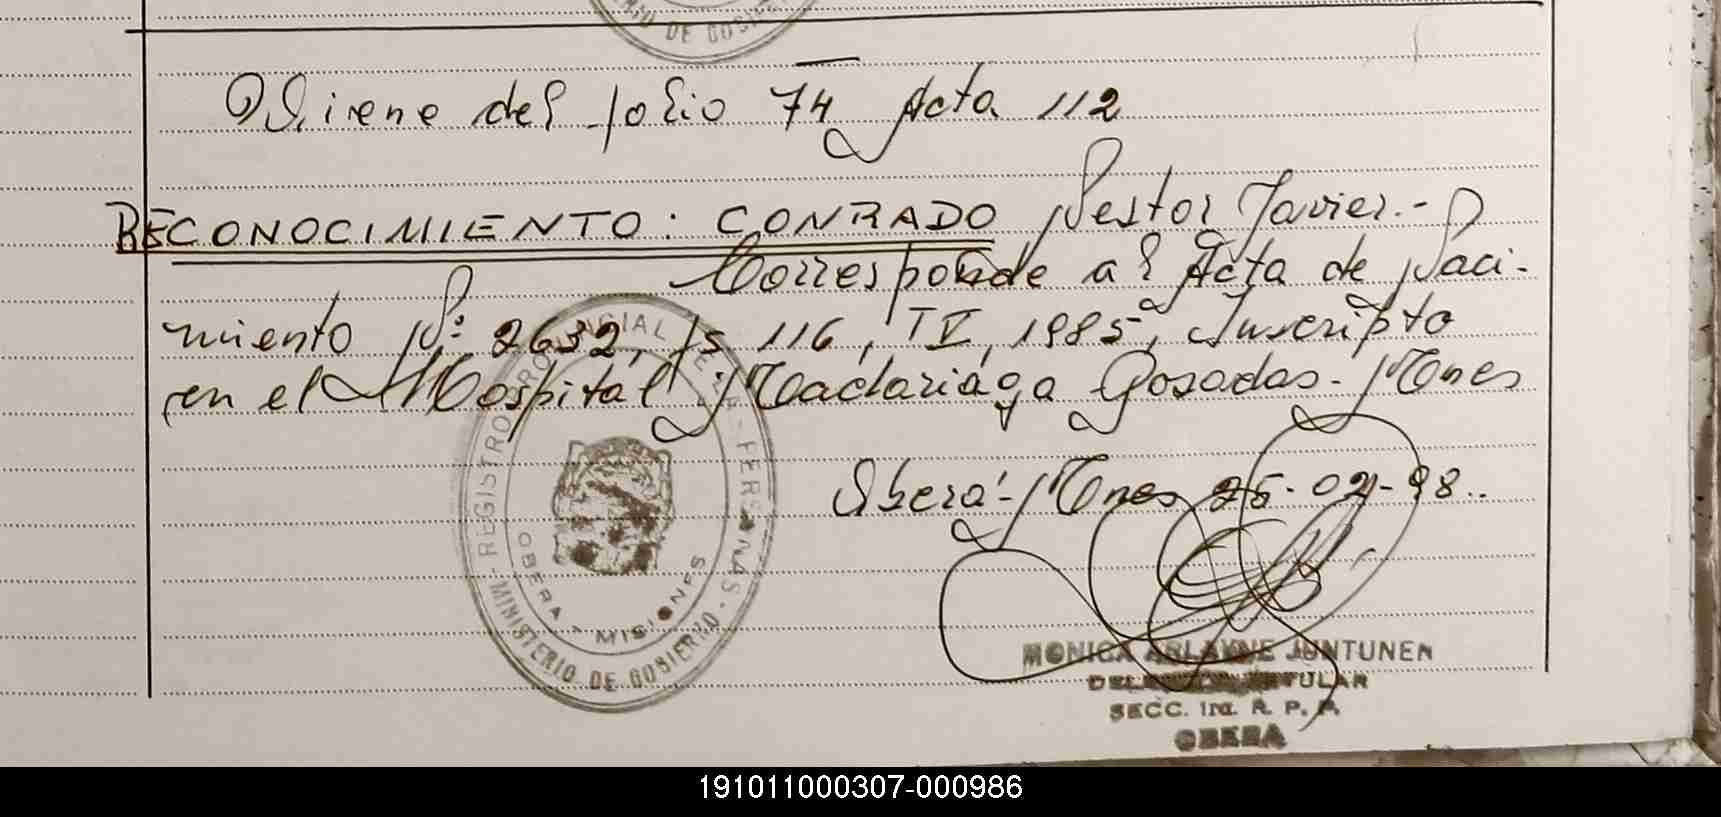 DE GOBIE
Viene del folio 74 Acta 112
RECONOCIMIENTO: CONRADO, Nestor Javier.-
Corresponde al Acta de Naci-
miento Nº 2632, fs 116, T V, 1985, Inscripto
en el Hospital Madariaga Posadas - Mnes
Oberá - Mnes 25-02-98..
REGISTRO PROVINCIAL DE LAS PERSONAS
OBERA - MISIONES
MINISTERIO DE GOBIERNO
MONICA ARLAYNE JUNTUNEN
TITULAR
SECC. 1ra. R. P. P.
OBERA
191011000307-000986